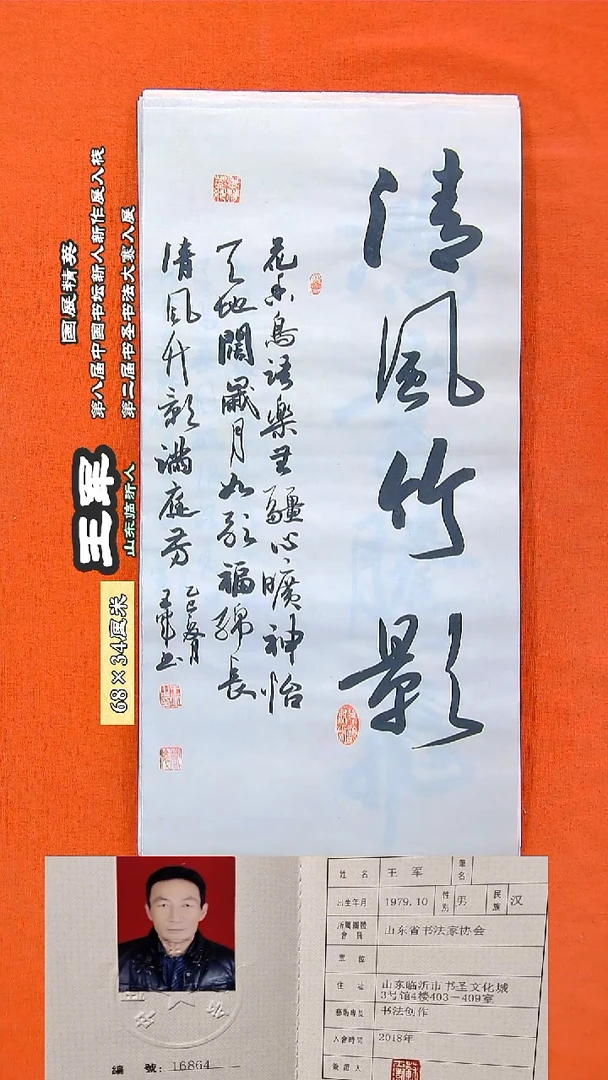 清風竹影
花香鳥語樂無疆心曠神怡
天地闊歲月如歌福綿長
清風竹影滿庭芳
乙巳冬月
王軍书
国展精英
第八届中国书坛新人新作展入展
第二届书圣书法大赛入展
王军
山东临沂人
68×34厘米
編 號：16864
姓 名 王 军 筆名
出生年月 1979.10 性别 男 民族 汉
所屬團體會員 山东省书法家协会
住 址 山东临沂市书圣文化城3号馆4楼403－409室
书法创作
入會時間 2018年
簽證人